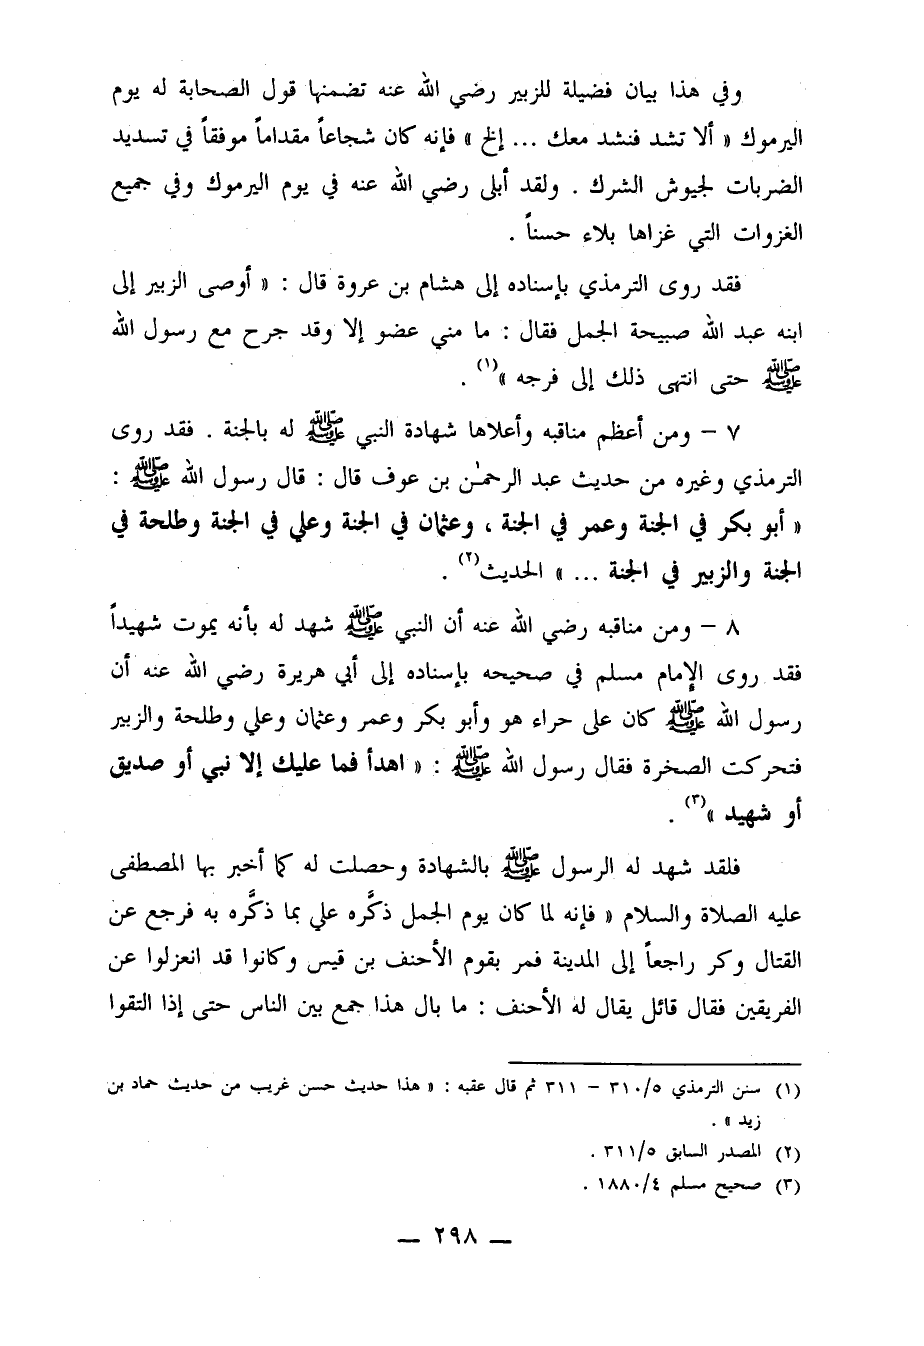 وفي هذا بيان فضيلة للزبير رضي الله عنه تضمنها قول الصحابة له يوم
اليرموك « ألا تشد فنشد معك ... إلخ » فإنه كان شجاعاً مقداماً موفقاً في تسديد
الضربات لجيوش الشرك . ولقد أبلى رضي الله عنه في يوم اليرموك وفي جميع
الغزوات التي غزاها بلاء حسناً .
فقد روى الترمذي بإسناده إلى هشام بن عروة قال : « أوصى الزبير إلى
ابنه عبد الله صبيحة الجمل فقال : ما مني عضو إلا وقد جرح مع رسول الله
ﷺ حتى انتهى ذلك إلى فرجه »(١) .
٧ – ومن أعظم مناقبه وأعلاها شهادة النبي ﷺ له بالجنة . فقد روى
الترمذي وغيره من حديث عبد الرحمٰن بن عوف قال : قال رسول الله ﷺ :
« أبو بكر في الجنة وعمر في الجنة ، وعثمان في الجنة وعلي في الجنة وطلحة في
الجنة والزبير في الجنة ... » الحديث(٢) .
٨ – ومن مناقبه رضي الله عنه أن النبي ﷺ شهد له بأنه يموت شهيداً
فقد روى الإمام مسلم في صحيحه بإسناده إلى أبي هريرة رضي الله عنه أن
رسول الله ﷺ كان على حراء هو وأبو بكر وعمر وعثمان وعلي وطلحة والزبير
فتحركت الصخرة فقال رسول الله ﷺ : « اهدأ فما عليك إلا نبي أو صديق
أو شهيد »(٣) .
فلقد شهد له الرسول ﷺ بالشهادة وحصلت له كما أخبر بها المصطفى
عليه الصلاة والسلام « فإنه لما كان يوم الجمل ذكَّره علي بما ذكَّره به فرجع عن
القتال وكر راجعاً إلى المدينة فمر بقوم الأحنف بن قيس وكانوا قد انعزلوا عن
الفريقين فقال قائل يقال له الأحنف : ما بال هذا جمع بين الناس حتى إذا التقوا
(١) سنن الترمذي ٣١٠/٥ – ٣١١ ثم قال عقبه : « هذا حديث حسن غريب من حديث حماد بن
زيد » .
(٢) المصدر السابق ٣١١/٥ .
(٣) صحيح مسلم ١٨٨٠/٤ .
– ٢٩٨ –